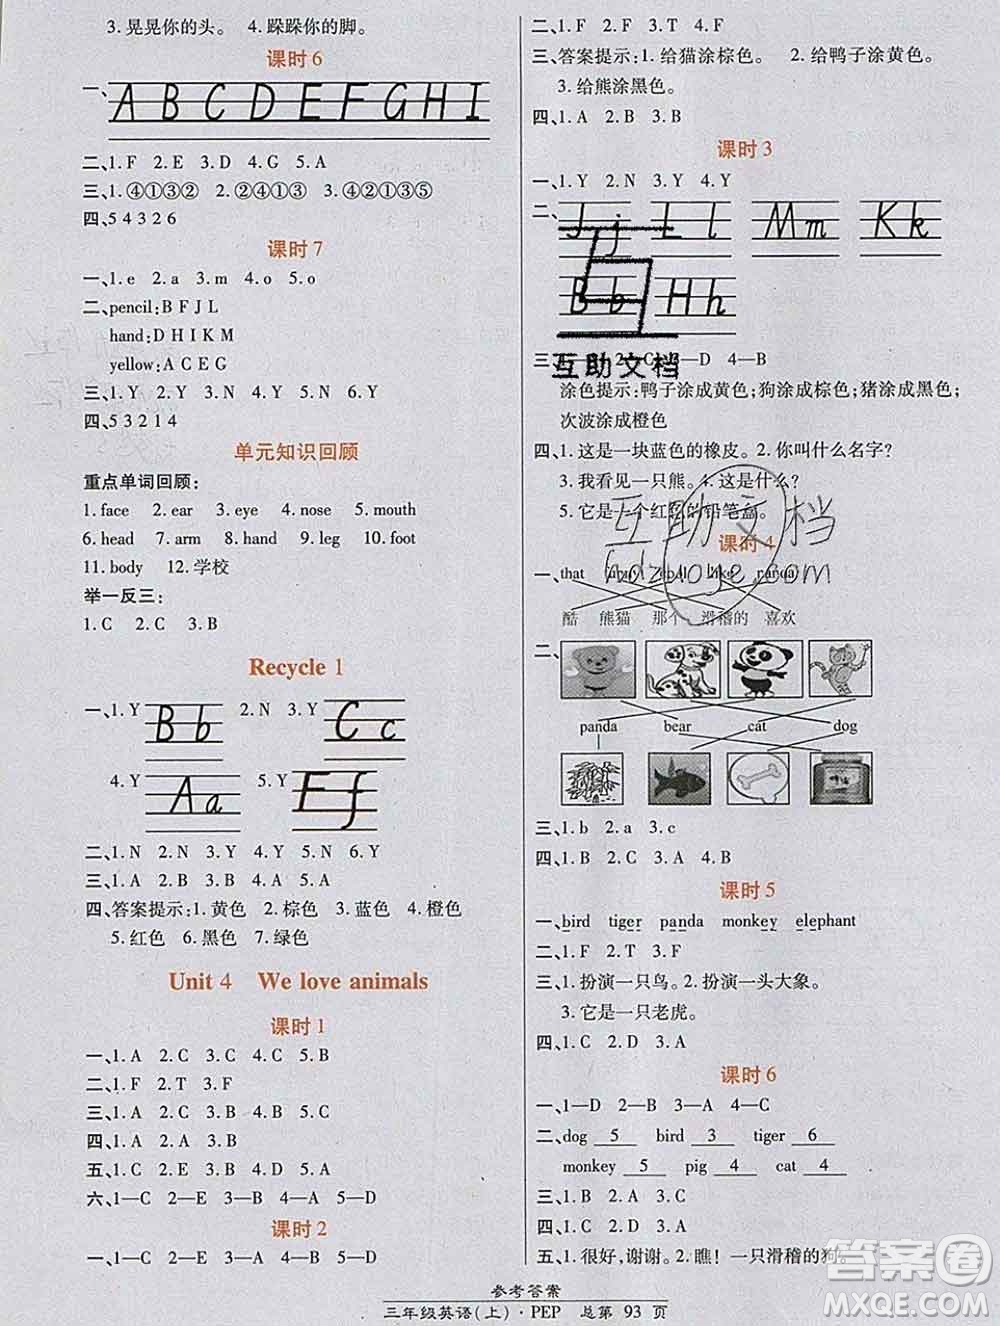 3. 晃晃你的头。 4. 跺跺你的脚。
课时 6
一、
A B C D E F G H I
二、1. F 2. E 3. D 4. G 5. A
三、1. ④①③② 2. ②④①③ 3. ②④①③⑤
四、5 4 3 2 6
课时 7
一、1. e 2. a 3. m 4. o 5. o 6. o 7. o
二、pencil: B F J L
hand: D H I K M
yellow: A C E G
三、1. Y 2. Y 3. Y 4. Y 5. N
四、5 3 2 1 4
单元知识回顾
重点单词回顾：
1. face 2. ear 3. eye 4. nose 5. mouth
6. head 7. arm 8. hand 9. leg 10. foot
11. body 12. 学校
举一反三：
1. C 2. C 3. B
Recycle 1
一、1. Y Bb 2. N 3. Y Cc
4. Y Aa 5. Y Ff
二、1. N 2. N 3. Y 4. Y 5. N 6. Y
三、1. A 2. C 3. B 4. A 5. C
四、答案提示：1. 黄色 2. 棕色 3. 蓝色 4. 橙色
5. 红色 6. 黑色 7. 绿色
Unit 4 We love animals
课时 1
一、1. A 2. C 3. C 4. C 5. B
二、1. F 2. T 3. F
三、1. A 2. C 3. B 4. A 5. B
四、1. A 2. A 3. B
五、1. C 2. E 3. B 4. D 5. A
六、1—C 2—E 3—B 4—A 5—D
课时 2
一、1—C 2—E 3—B 4—A 5—D
二、1. F 2. F 3. T 4. T
三、答案提示：1. 给猫涂棕色。 2. 给鸭子涂黄色。
3. 给熊涂黑色。
四、1. A 2. A 3. B 4. B
课时 3
一、1. Y 2. N 3. Y 4. Y
二、
Jj Ll Mm Kk
Bb Hh
三、 C 3—D 4—B
互助文档
涂色提示：鸭子涂成黄色；狗涂成棕色；猪涂成黑色；
次波涂成橙色
四、1. 这是一块蓝色的橡皮。 2. 你叫什么名字？
3. 我看见一只熊。 4. 这是什么？
5. 它是一个红色的铅笔盒。
互助文档
课时 4
一、that like panda
酷 熊猫 那个 滑稽的 喜欢
二、
panda bear cat dog
三、1. b 2. a 3. c
四、1. B 2. C 3. A 4. B
课时 5
一、bird tiger panda monkey elephant
二、1. F 2. T 3. F
三、1. 扮演一只鸟。 2. 扮演一头大象。
3. 它是一只老虎。
四、1. C 2. D 3. A
课时 6
一、1—D 2—B 3—A 4—C
二、dog 5 bird 3 tiger 6
monkey 5 pig 4 cat 4
三、1. B 2. A 3. C
四、1. C 2. D 3. A
五、1. 很好，谢谢。 2. 瞧！一只滑稽的狗。
答案圈
MXQE.COM
参考答案
三年级英语（上）·PEP 总第 93 页